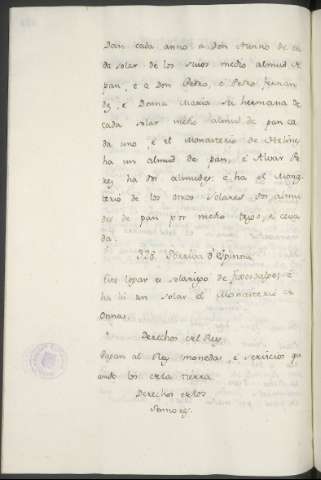 Dan cada anno a Don Nunno de ca
da solar de los suios medio almud de
pan, e a Don Pedro, e Pedro Ferran
dz, e Donna Maria su hermana de
cada solar medio almud de pan ca
da uno, e el Monasterio de
ha un almud de pan, e Alvar Pe
rez ha dos almudes, e ha el Monas
terio de los otros solares dos almu
des de pan por medio trigo, e ceva
da.
Espinosa
Este logar es solariego de fijosdalgos, e
ha hi un solar el Monasterio de
Onna.
Derechos del Rey
Pagan al Rey monedas, e servicios qu
ando los de la tierra
Derechos de los
Sennores.